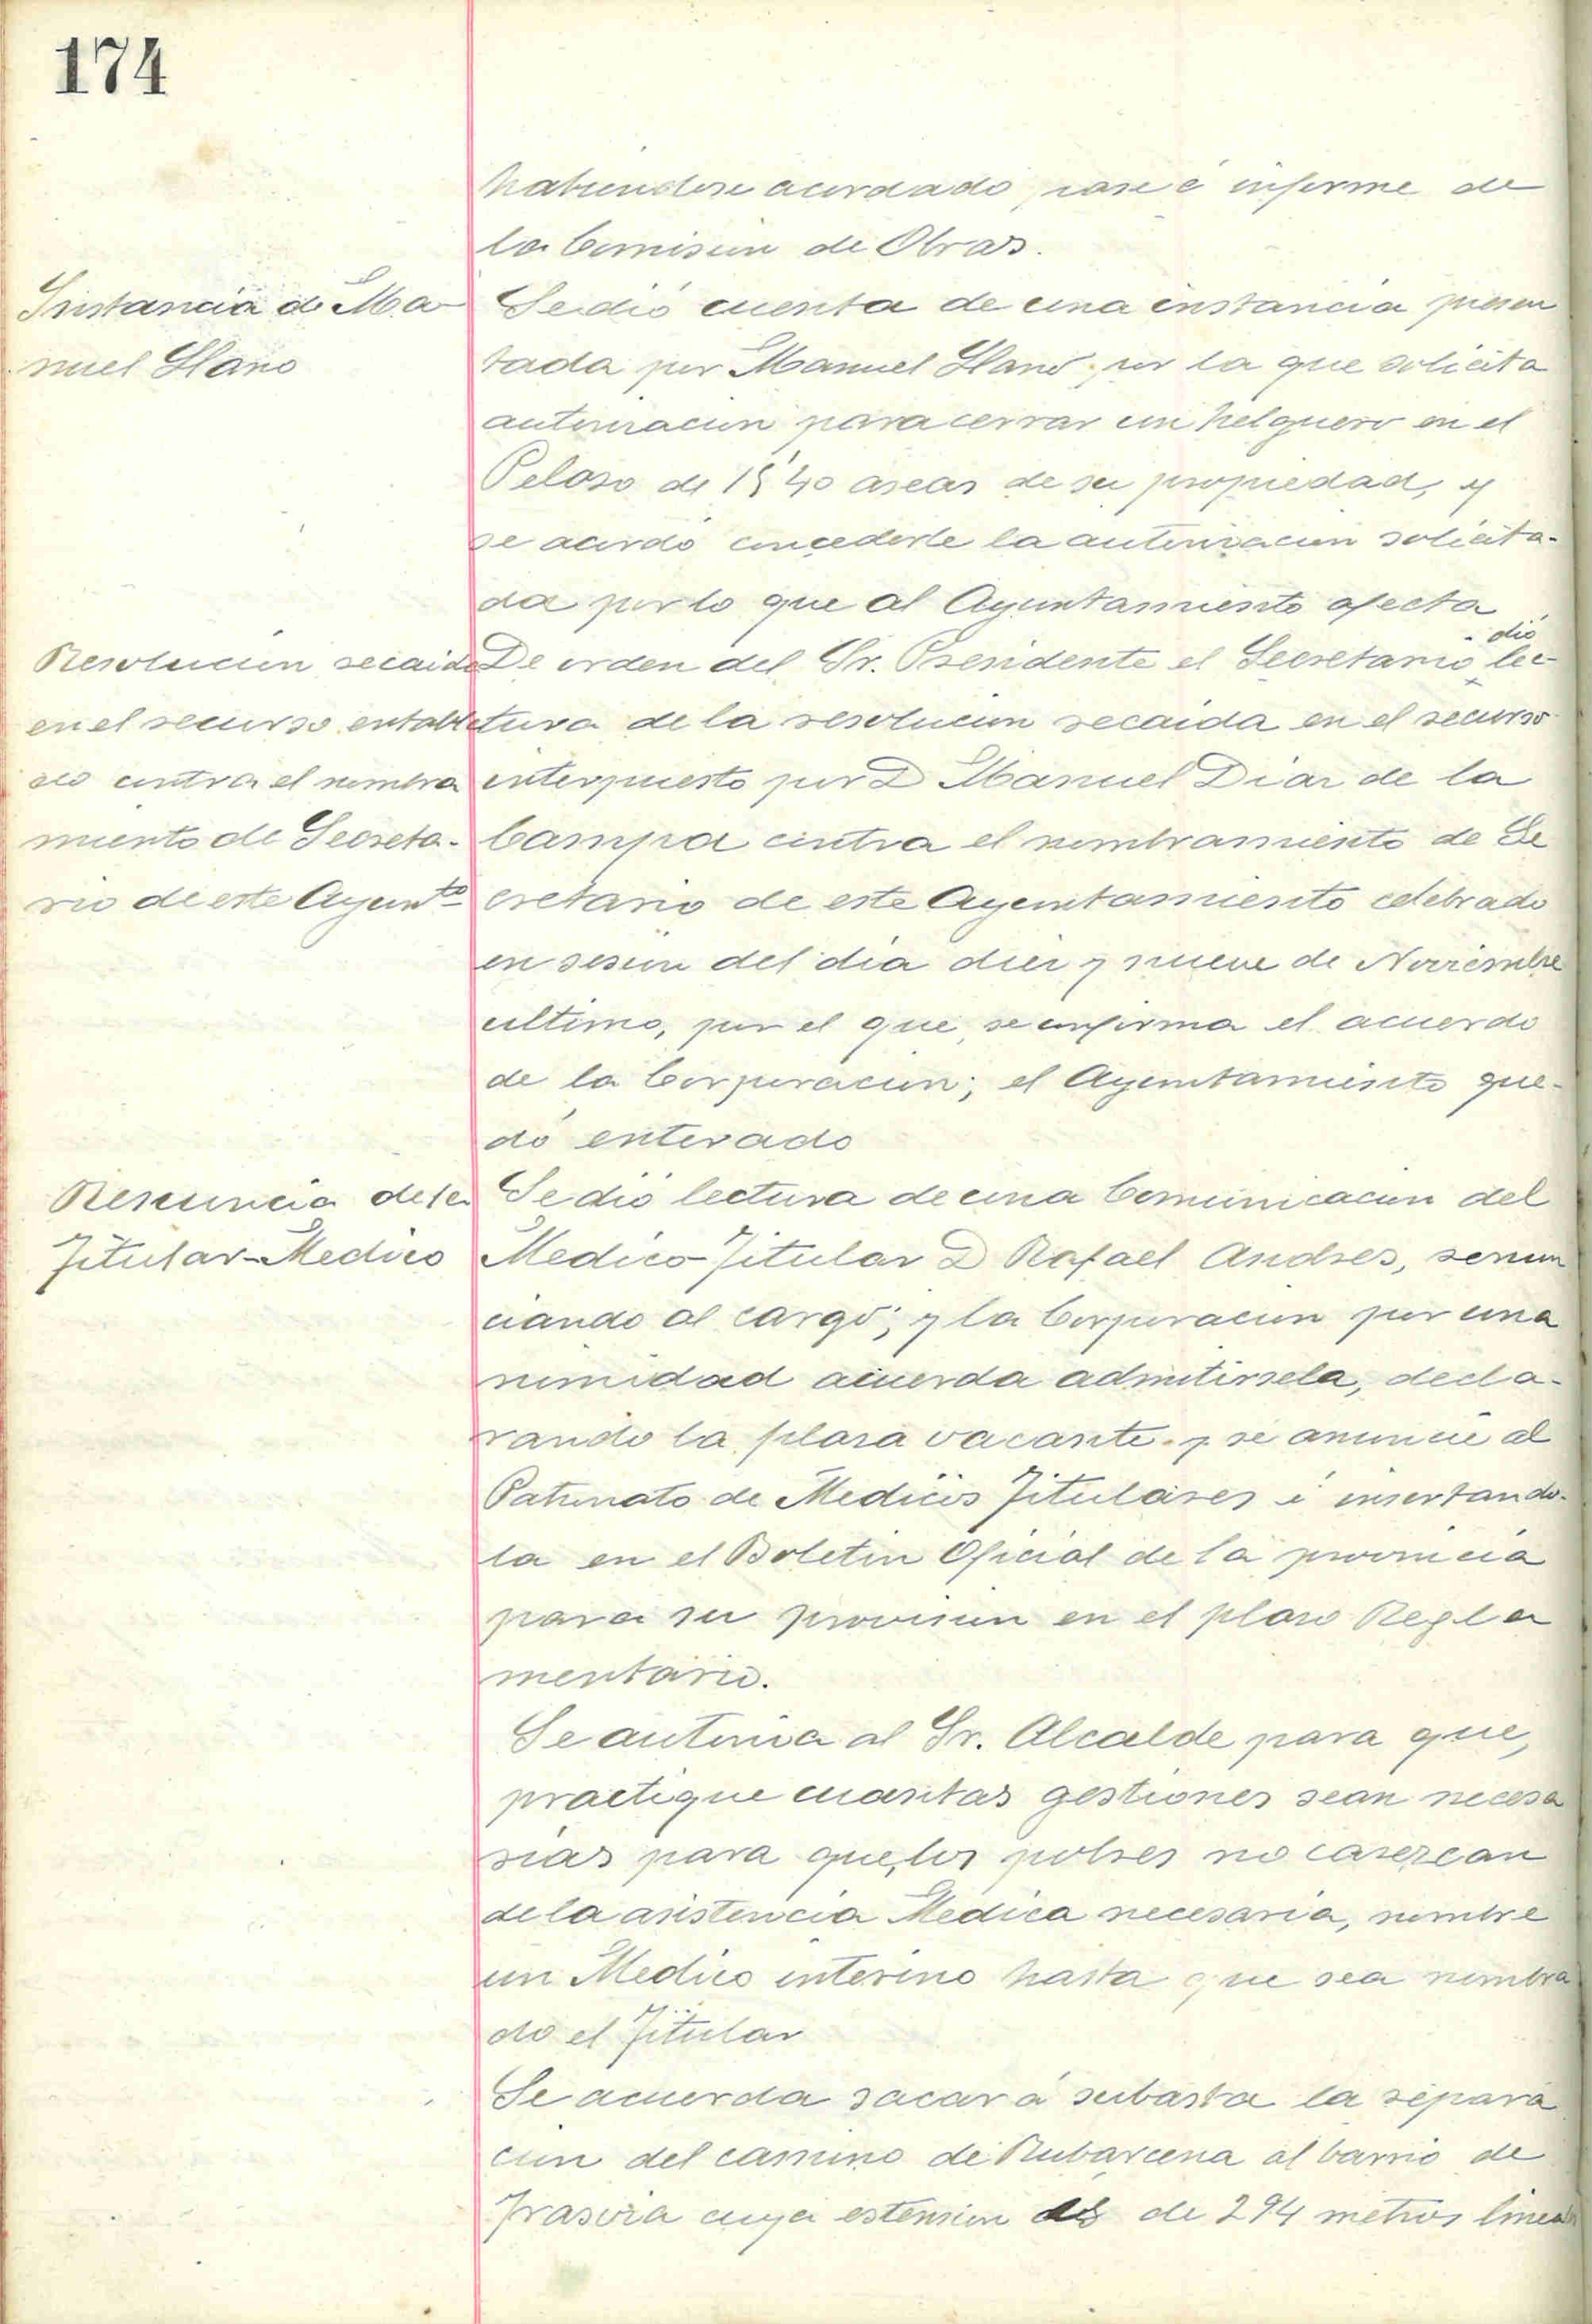 174
habiendose acordado, pase é informe de
la Comision de Obras.
Instancia de Ma
nuel Llano
Se dió cuenta de una instancia presen
tada por Manuel Llano, por la que solicita
autorizacion para cerrar un helguero en el
Peloso de 40 areas de su propiedad, y
se acordó concederle la autorizacion solicita-
da por lo que al Ayuntamiento afecta
Resolucion recaida
en el recurso entabla
do contra el nombra
miento de Secreta-
rio de este Ayunto
De orden del Sr. Presidente el Secretario dió lec-
tura de la resolucion recaida en el recurso
interpuesto por D Manuel Diaz de la
Campa contra el nombramiento de Se
cretario de este Ayuntamiento celebrado
en sesion del dia diez y nueve de Noviembre
ultimo, por el que, se confirma el acuerdo
de la Corporacion; el Ayuntamiento que-
dó enterado
Renuncia de
Titular-Medico
Se dió lectura de una Comunicacion del
Medico-Titular D Rafael Andres, renun
ciando al cargo; y la Corporacion por una
nimidad acuerda admitirsela, decla-
rando la plaza vacante y se anuncie al
Patronato de Medicos Titulares é insertando-
la en el Boletin Oficial de la provincia
para su provision en el plazo Regla
mentario.
Se autoriza al Sr. Alcalde para que,
practique cuantas gestiones sean necesa
rias para que, los pobres no carezcan
de la asistencia Medica necesaria, nombre
un Medico interino hasta que sea nombra
do el Titular
Se acuerda sacar á subasta la repara
cion del camino de Rubarcena al barrio de
Trasvia cuya estension es de 294 metros lineales